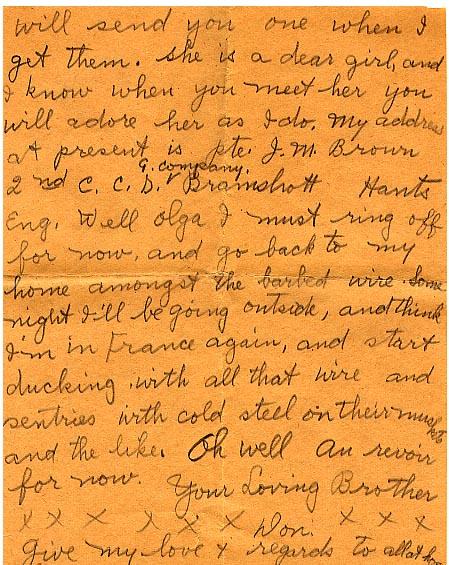 will send you one when I
get them. she is a dear girl, and
I know when you meet her you
will adore her as I do. My address
at present is pte. J. M. Brown
G. company.
2nd C. C. D. Bramshott Hants
Eng. Well olga I must ring off
for now, and go back to my
home amongst the barbed wire. Some
night I'll be going outside, and think
I'm in France again, and start
ducking with all that wire and
sentries with cold steel on their muskets
and the like. Oh well au revoir
for now. Your Loving Brother
x x x x x x Don. x x x
Give my love & regards to all at